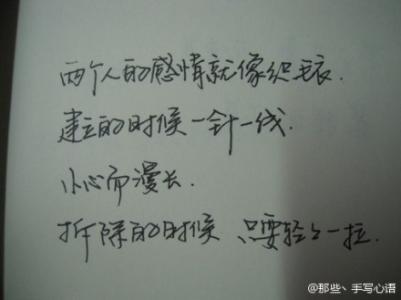 两个人的感情就像织毛衣.
建立的时候一针一线.
小心而漫长.
拆除的时候 只要轻々一拉.
@那些、手写心语